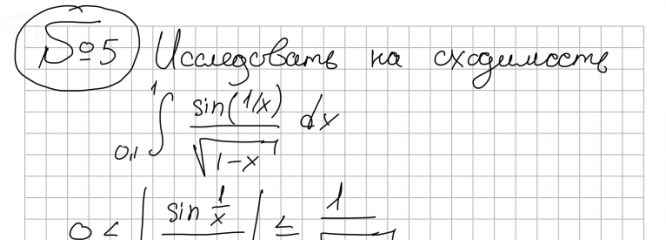 №5 Исследовать на сходимость
∫_{0,1}^{1} sin(1/x) / √(1-x) dx
0 < | sin 1/x | ≤ 1